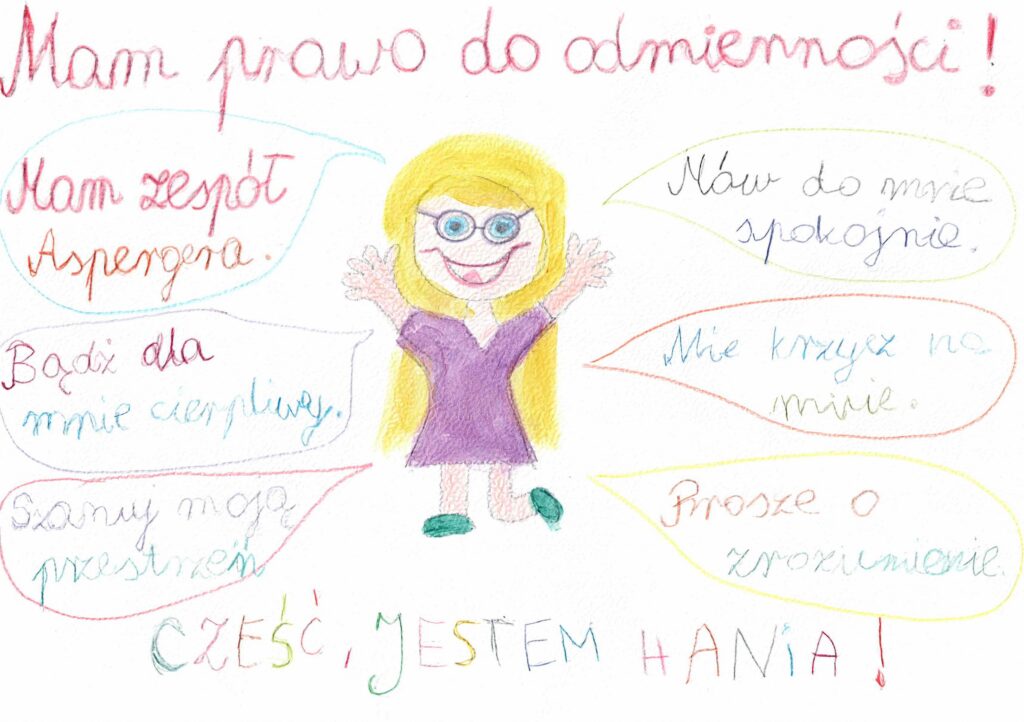 Mam prawo do odmienności!
Mam zespół
Aspergera.
Bądź dla
mnie cierpliwy.
Szanuj moją
przestrzeń
Mów do mnie
spokojnie.
Nie krzycz na
mnie.
Prosze o
zrozumienie.
CZEŚĆ, JESTEM HANiA!